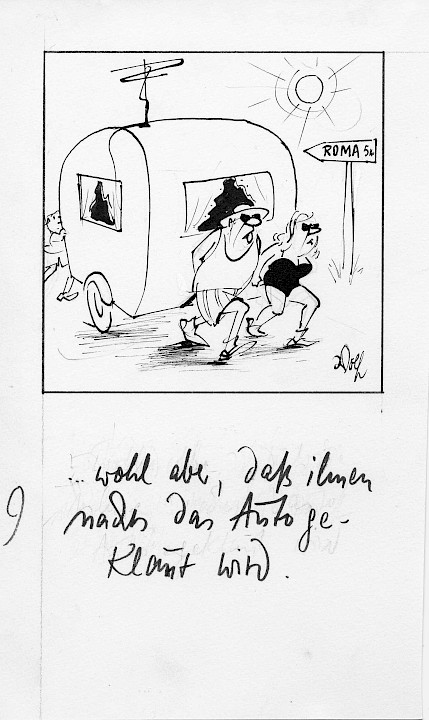 ROMA 5k
Wolf
... wohl aber, daß ihnen
nachts das Auto ge-
klaut wird.
9